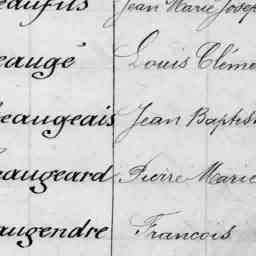 eaufils Jean Marie Josep
eaugé Louis Cléme
eaugeais Jean Baptis
eaugeard Pierre Marie
augendre Francois